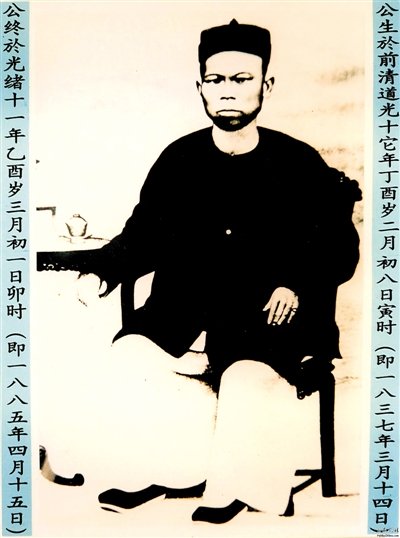 公生於前清道光十它年丁酉岁二月初八日寅时（即一八三七年三月十四日）
公终於光绪十一年乙酉岁三月初一日卯时（即一八八五年四月十五日）